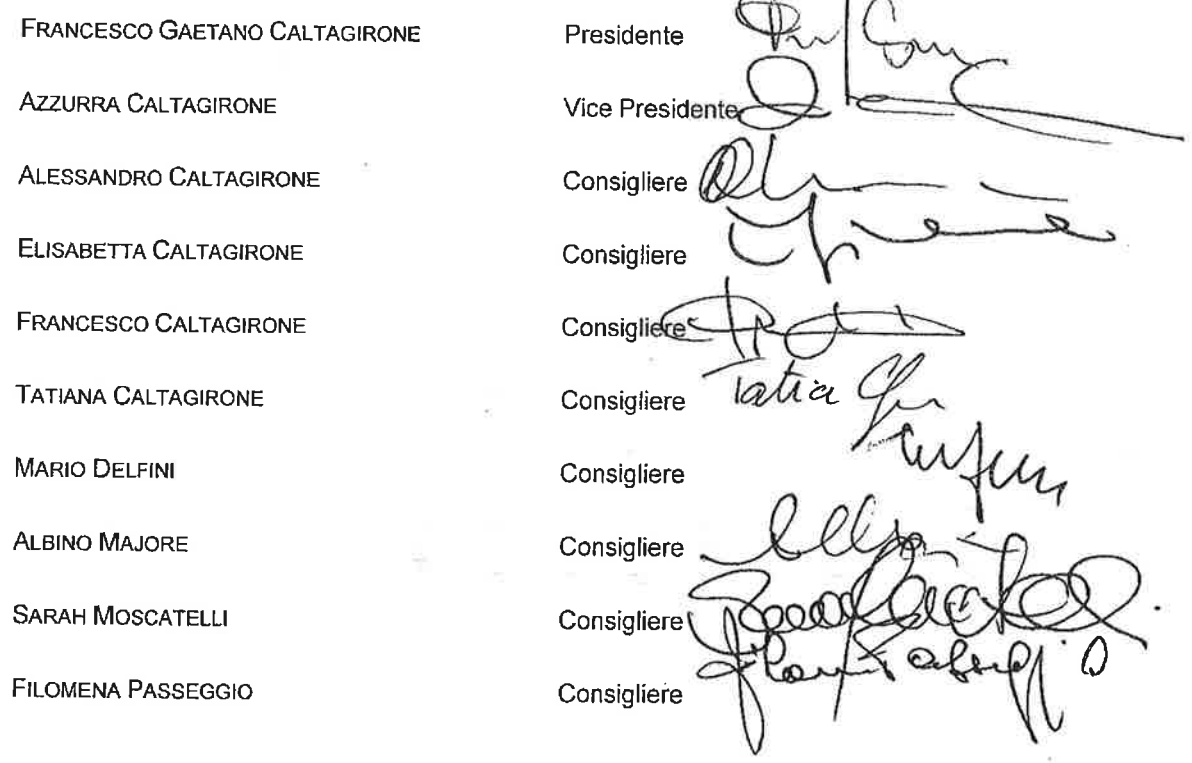 FRANCESCO GAETANO CALTAGIRONE Presidente
AZZURRA CALTAGIRONE Vice Presidente
ALESSANDRO CALTAGIRONE Consigliere
ELISABETTA CALTAGIRONE Consigliere
FRANCESCO CALTAGIRONE Consigliere
TATIANA CALTAGIRONE Consigliere
MARIO DELFINI Consigliere
ALBINO MAJORE Consigliere
SARAH MOSCATELLI Consigliere
FILOMENA PASSEGGIO Consigliere